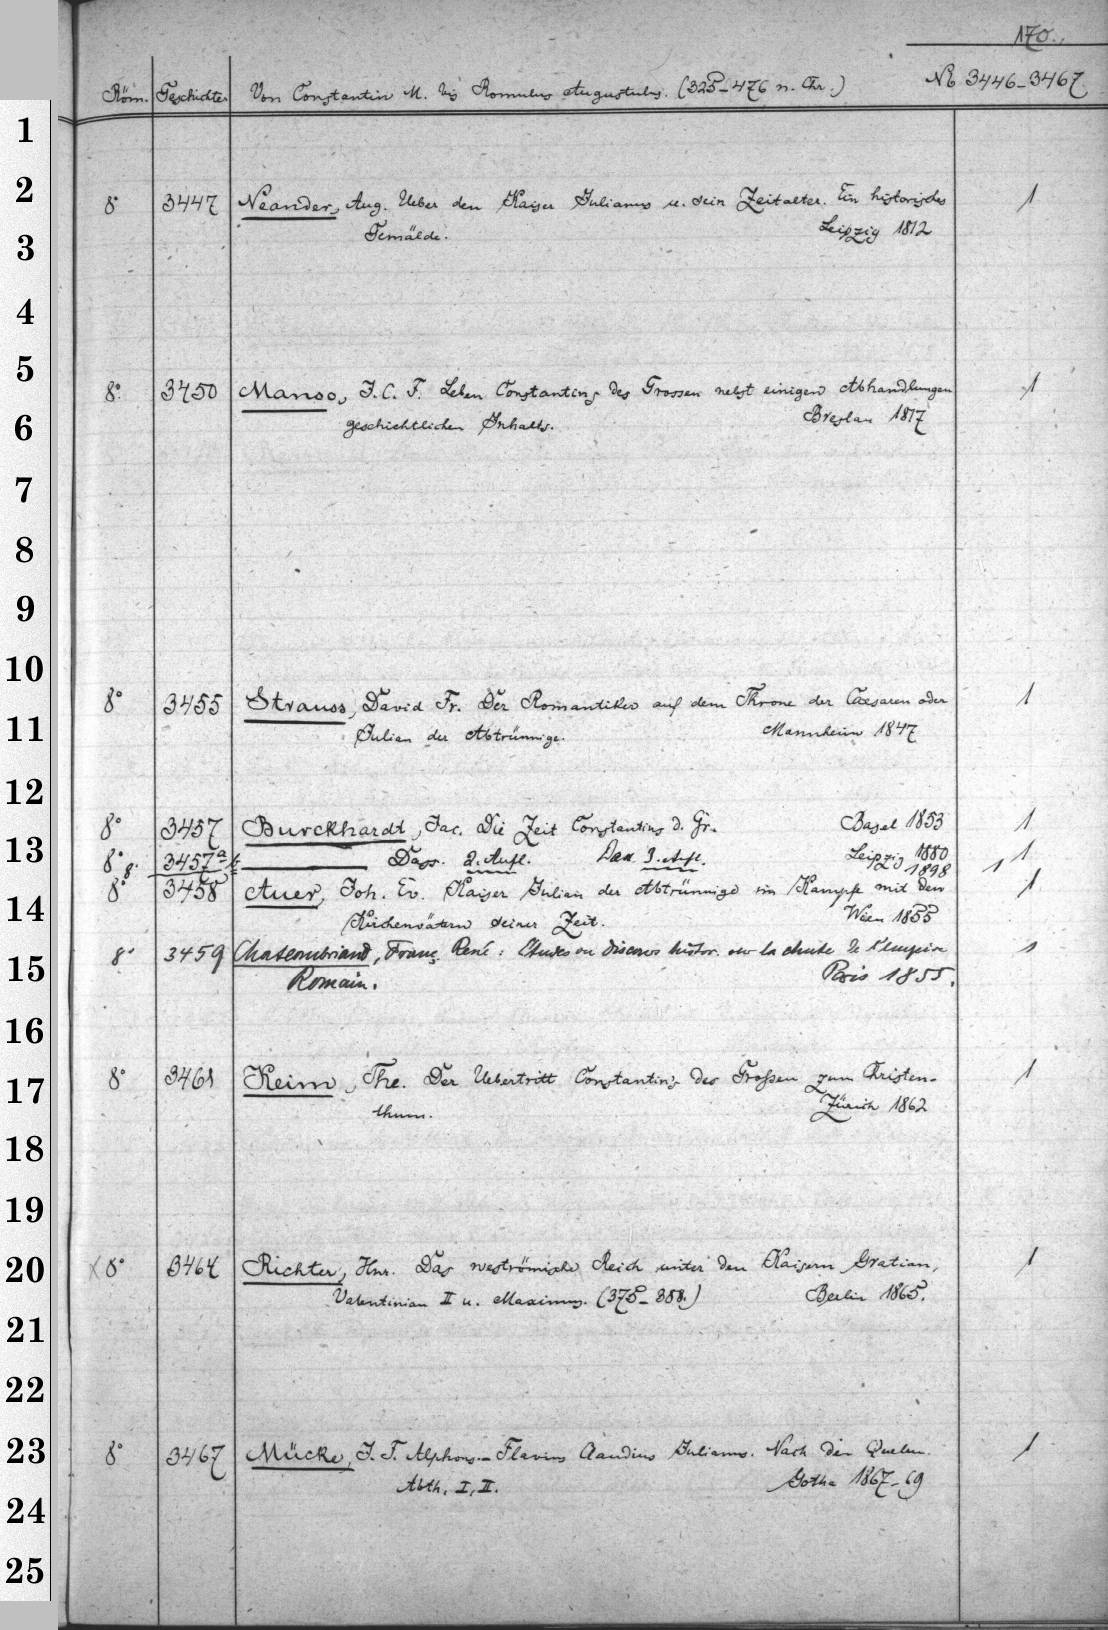 170.
Röm. Geschichte Von Constantin M. bis Romulus Augustulus. (325-476 n. Chr.) No 3446-3467
1
2
8° 3447 Neander, Aug. Ueber den Kaiser Julianus u. sein Zeitalter. Ein historisches 1
3
Gemälde. Leipzig 1812
4
5
8° 3450 Manso, J. C. F. Leben Constantins des Grossen nebst einigen Abhandlungen 1
6
geschichtlichen Inhalts. Breslau 1817
7
8
9
10
8° 3455 Strauss, David Fr. Der Romantiker auf dem Throne der Caesaren oder 1
11
Julian der Abtrünnige. Mannheim 1847
12
8° 3457 Burckhardt, Jac. Die Zeit Constantins d. Gr. Basel 1853 1
13
8° 8° 3457 a b Dass. 2. Aufl. Dass. 3. Aufl. Leipzig 1880 1
1898 1
8° 3458 Auer, Joh. Ev. Kaiser Julian der Abtrünnige im Kampfe mit den 1
14
Kirchenvätern seiner Zeit. Wien 1855
8° 3459 Chateaubriand, Franç. René: Etudes ou discours histor. sur la chute de l'empire 1
15
Romain. Paris 1855.
16
8° 3461 Keim, The. Der Uebertritt Constantin's des Großen zum Christen- 1
17
thum. Zürich 1862
18
19
20
x 8° 3464 Richter, Hnr. Das weströmische Reich unter den Kaisern Gratian, 1
Valentinian II u. Maximus. (375-388.) Berlin 1865.
21
22
23
8° 3467 Mücke, J. F. Alphons.- Flavius Claudius Julianus. Nach den Quellen. 1
Abth. I, II. Gotha 1867-69
24
25